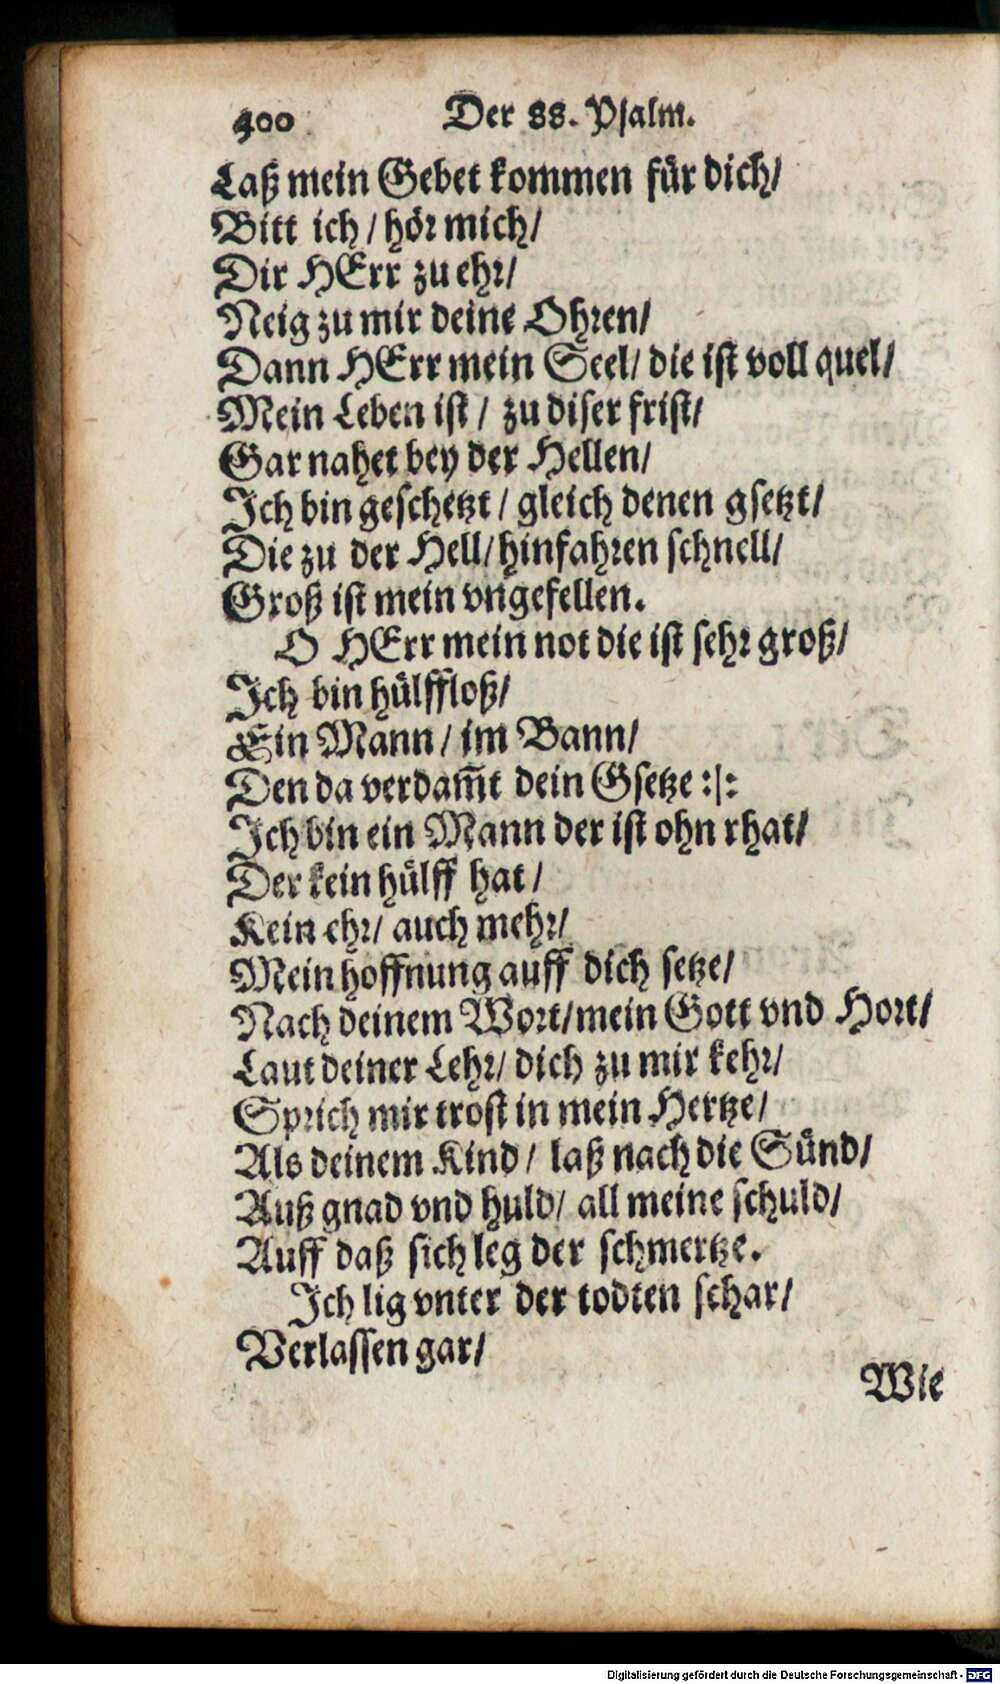 400 Der 88. Psalm.
Laß mein Gebet kommen für dich/
Bitt ich / hör mich/
Dir HErr zu ehr/
Neig zu mir deine Ohren/
Dann HErr mein Seel/ die ist voll quel/
Mein Leben ist / zu diser frist/
Gar nahet bey der Hellen/
Ich bin geschetzt / gleich denen gsetzt/
Die zu der Hell/ hinfahren schnell/
Groß ist mein vngefellen.
O HErr mein not die ist sehr groß/
Ich bin hülffloß/
Ein Mann / im Bann/
Den da verdam̃t dein Gsetze :|:
Ich bin ein Mann der ist ohn rhat/
Der kein hülff hat /
Kein ehr/ auch mehr/
Mein hoffnung auff dich setze/
Nach deinem Wort/ mein Gott vnd Hort/
Laut deiner Lehr/ dich zu mir kehr/
Sprich mir trost in mein Hertze/
Als deinem Kind / laß nach die Sünd/
Auß gnad vnd huld/ all meine schuld/
Auff daß sich leg der schmertze.
Ich lig vnter der todten schar/
Verlassen gar/
Wie
Digitalisierung gefördert durch die Deutsche Forschungsgemeinschaft - DFG